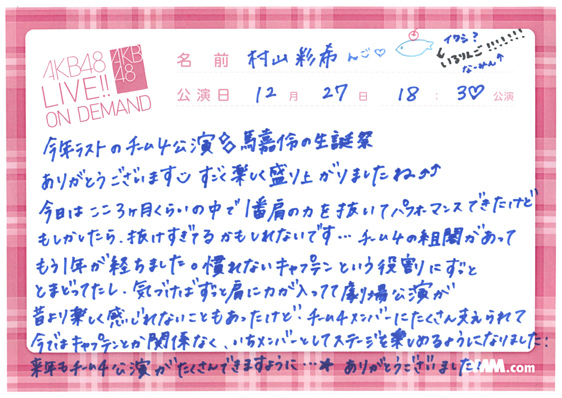 AKB48
LIVE!!
ON DEMAND
AKB
48
名前 村山彩希 んご♡
イワシ?
いるりんご!!!!!!
なーめん↑
公演日 12月 27日 18:30♡公演
今年ラストのチーム4公演&馬嘉伶の生誕祭
ありがとうございます すごく楽しく盛り上がりましたね↑↑
今日はここ3ヶ月くらいの中で1番肩の力を抜いてパフォーマンスできたけど
もしかしたら、抜けすぎてるかもしれないです…チーム4の組閣があって
もう1年が経ちました。慣れないキャプテンという役割にずっと
とまどってたし、気づけばずっと肩に力が入ってて劇場公演が
昔より楽しく感じれないこともあったけど、チーム4メンバーにたくさん支えられて
今ではキャプテンとか関係なく、いちメンバーとしてステージを楽しめるようになりました!
来年もチーム4公演がたくさんできますように…★ ありがとうございました!
DMM.com